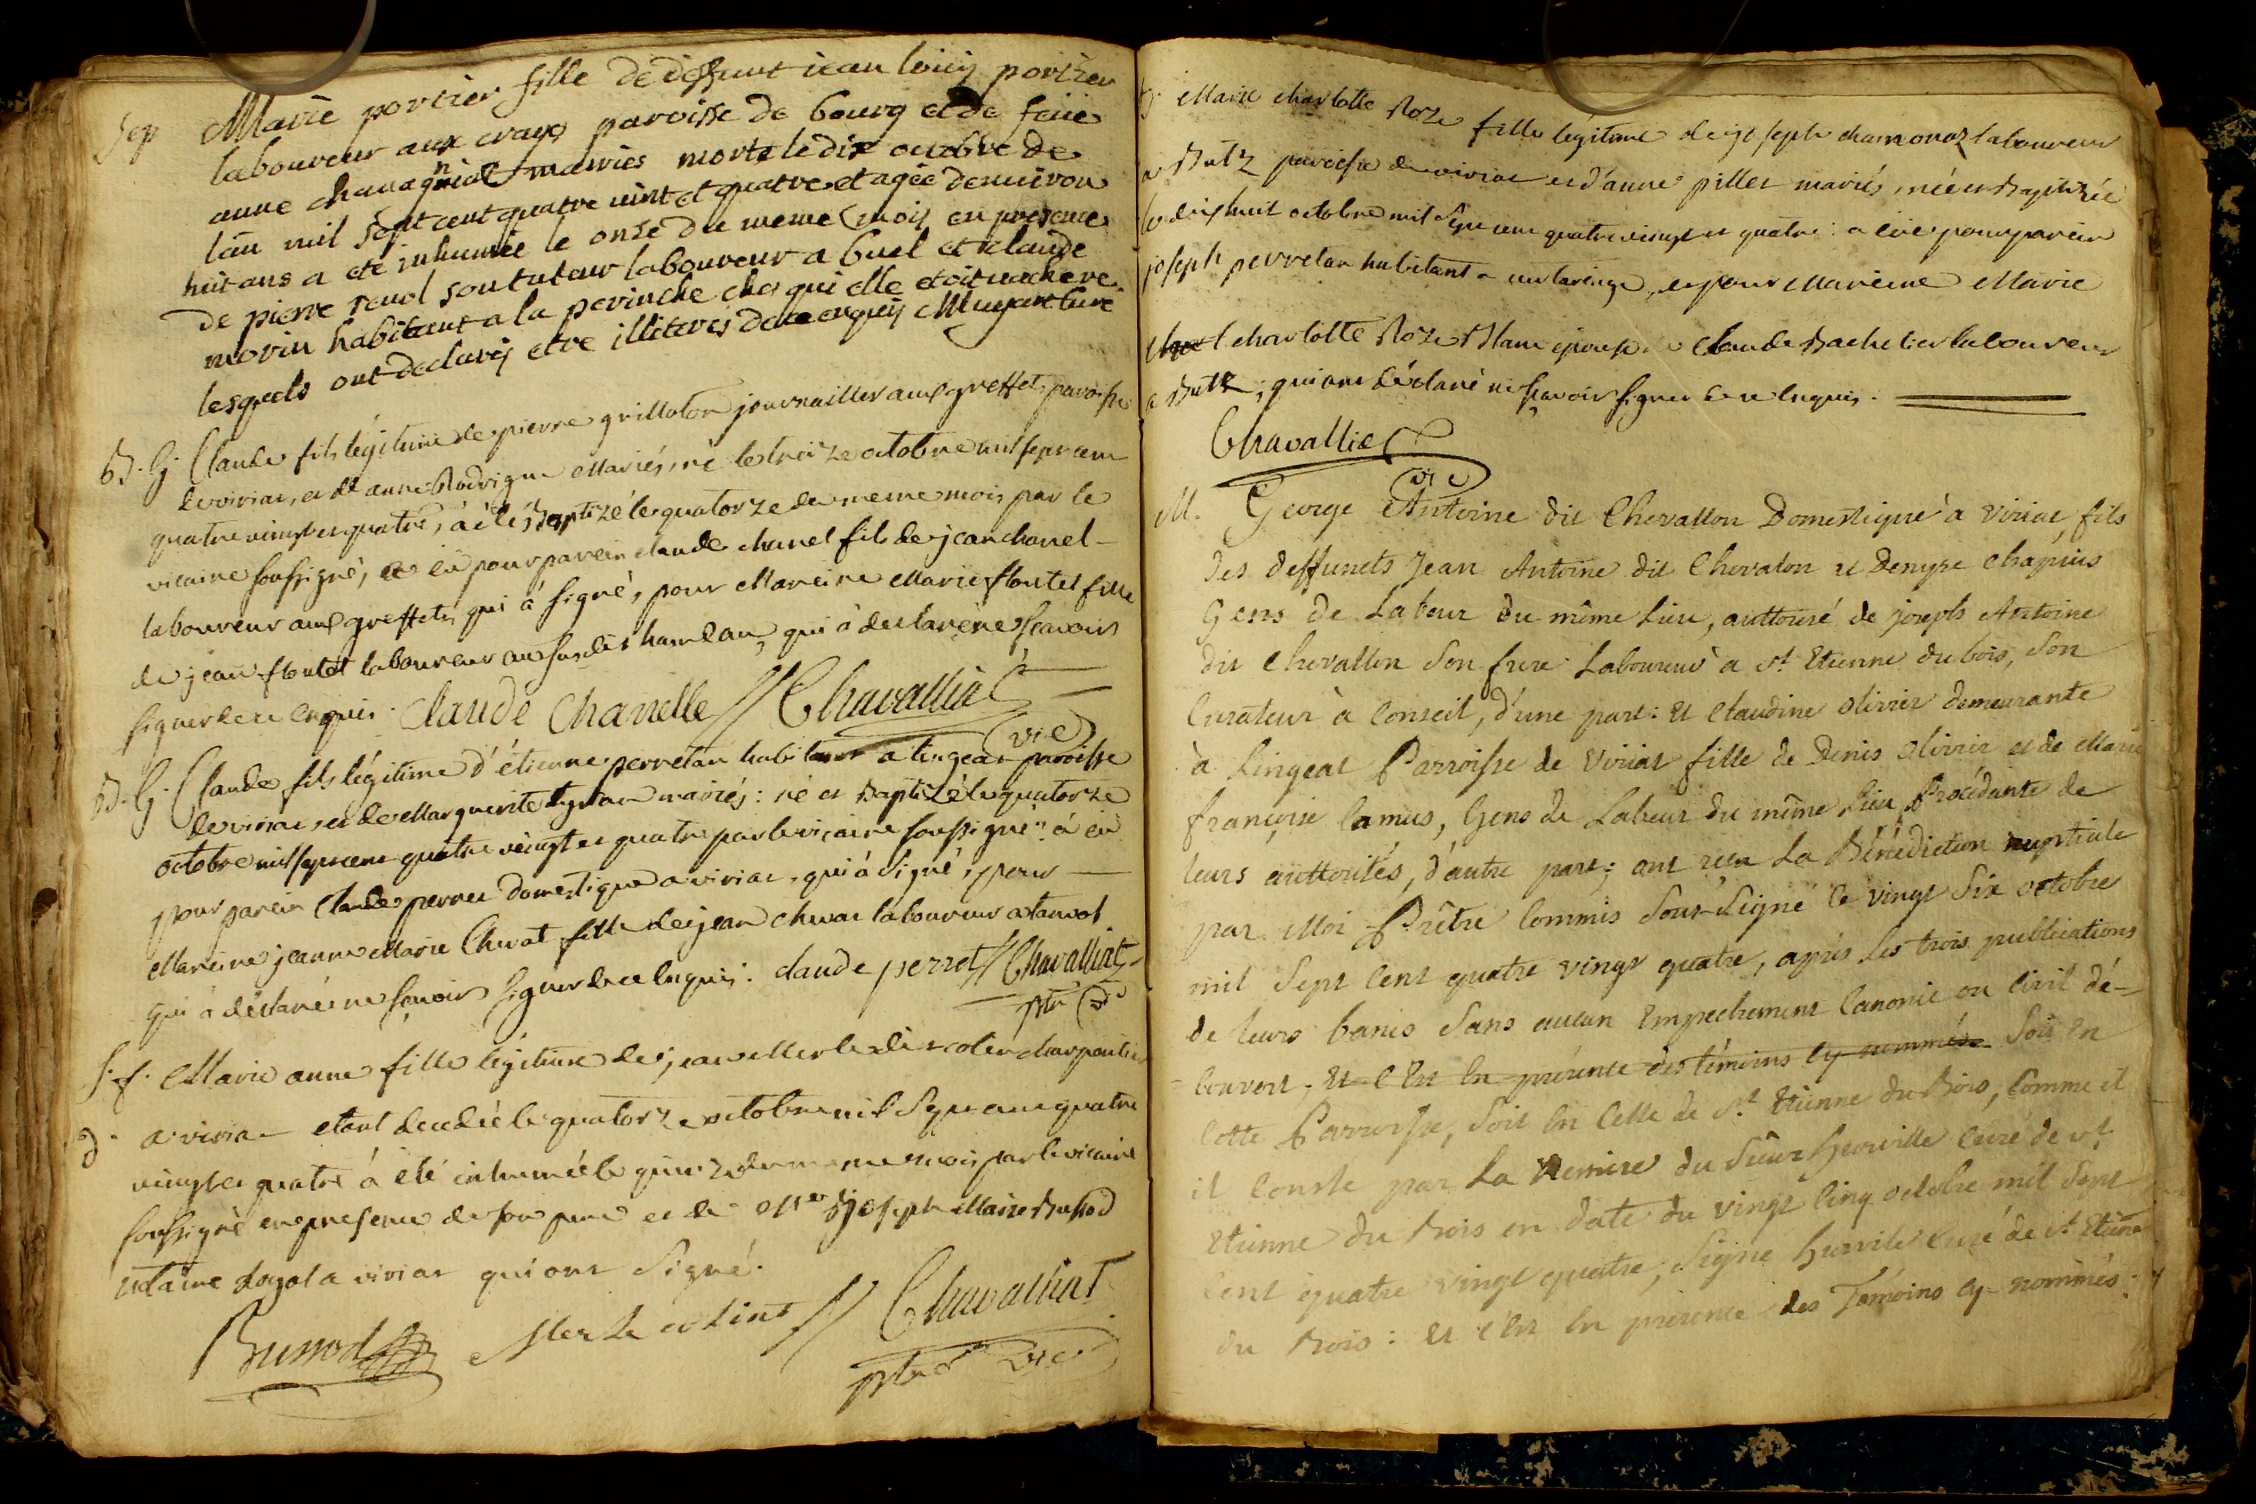 Sep Marie portier fille de deffunt jean louis portier
laboureur aux crays paroisse de bourg et de feüe
anne chanagniat mariés morte le dix octobre de
lan mil sept cent quatre vint et quatre et agée denviron
huit ans a eté inhumée le onse du meme mois en presence
de pierre renol son tuteur laboureur a buel et claude
morin habitant a la pervinche ches qui elle etoit vachere
lesquels ont declaris etre illiteres de ce enquis
B. G. Claude fils légitime de pierre grillaton journaillier aux greffets paroisse
de viriat, et de anne Rodrigue Mariés, né le treize octobre mil sept cent
quatre vingt et quatre, à été baptizé le quatorze de meme mois par le
vicaire soussigné, a eü pour parein claude chanel fils de jean chanel
laboureur aux greffets qui à signé, pour Mareine Marie floutet fille
de jean floutet laboureur au susdit hameau, qui à déclaré ne scavoir
signer de ce enquis. Claude Chanelle // Chavalliat vic
B. G. Claude fils légitime d'étienne perretan habitant a lingeat paroisse
de viriat et de Marguerite mariés: né et baptizé le quatorze
octobre mil sept cent quatre vingt et quatre par le vicaire soussigné: à eü
pour parein Claude perret domestique a viriat, qui à signé, pour
Mareine jeanne Marie Chevat fille de jean chevat laboureur a tanvol
qui à déclaré ne scavoir signer de ce enquis: claude perret // Chavalliat
ptre vic
S. f. Marie anne fille légitime de jean Merle dit colin charpentier
d. a viriat etant décédée le quatorze octobre mil sept cent quatre
vingt et quatre à été inhumée le quinze du meme mois par le vicaire
soussigné en presence de son pere et de Mre joseph Marie Bussod
notaire Royal a viriat qui ont signé.
Bussod Merle colint // Chavalliat
ptre vic
B. Marie charlotte Roze fille légitime de joseph chamonaz laboureur
a Butz paroisse de viriat et d'anne pillet mariés, née et baptizée
le dix huit octobre mil sept cent quatre vingt et quatre: a eü pour parein
joseph perretan habitant a, et pour Mareine Marie
charlotte Roze Blanc épouse de Claude Bachelier laboureur
a Butz, qui ont déclaré ne scavoir signer de ce enquis.
Chavalliat
vic
M. George Antoine dit Chevallon Domestique à viriat, fils
des deffuncts Jean Antoine dit Chevalon et Denyse Chapuis
Gens de Labeur du même Lieu, authorisé de joseph Antoine
dit Chevallon Son frere Laboureur a St Etienne du bois, Son
Curateur à Conseil, d'une part: Et Claudine olivier demeurante
à Lingeat Parroisse de Viriat fille de Denis olivier et de Marie
françoise Camus, Gens de Labeur du même Lieu, Procédante de
leurs authorités, d'autre part; ont reçu La Bénédiction nuptiale
par Moi Prêtre Commis Sous-Signé Ce vingt Six octobre
mil Sept Cent quatre vingt quatre, après Les trois publications
de leurs banis Sans aucun Empechement Canonic ou Civil dé-
-couvert, Et C'Est En présence des témoins Cy-nommés Soit En
Cette Parroisse, Soit En Celle de St Etienne du Bois, Comme il
il Conste par La Remise du Sieur Curé de St
Etienne du Bois en date du vingt Cinq octobre mil Sept
Cent quatre vingt quatre, Signé Curé de St Etienne
du Bois: Et C'Est En présence des Témoins Cy-nommés: